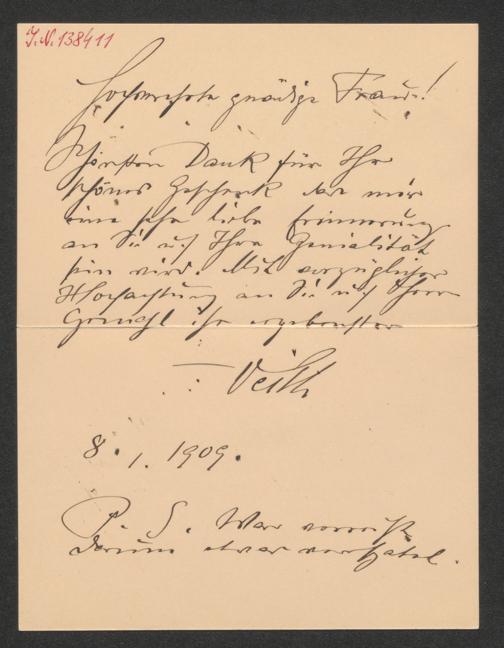 J.N. 138411
Hochverehrte gnädige Frau!
Schönsten Dank für Ihr
schönes Geschenk das mir
eine sehr liebe Erinnerung
an Sie und Ihre Genialität
sein wird. Mit vorzüglicher
Hochachtung an Sie und Ihren
Gemahl Ihr ergebenster
Veith
8. 1. 1909.
P. S. War verreist
darum etwas verspätet.